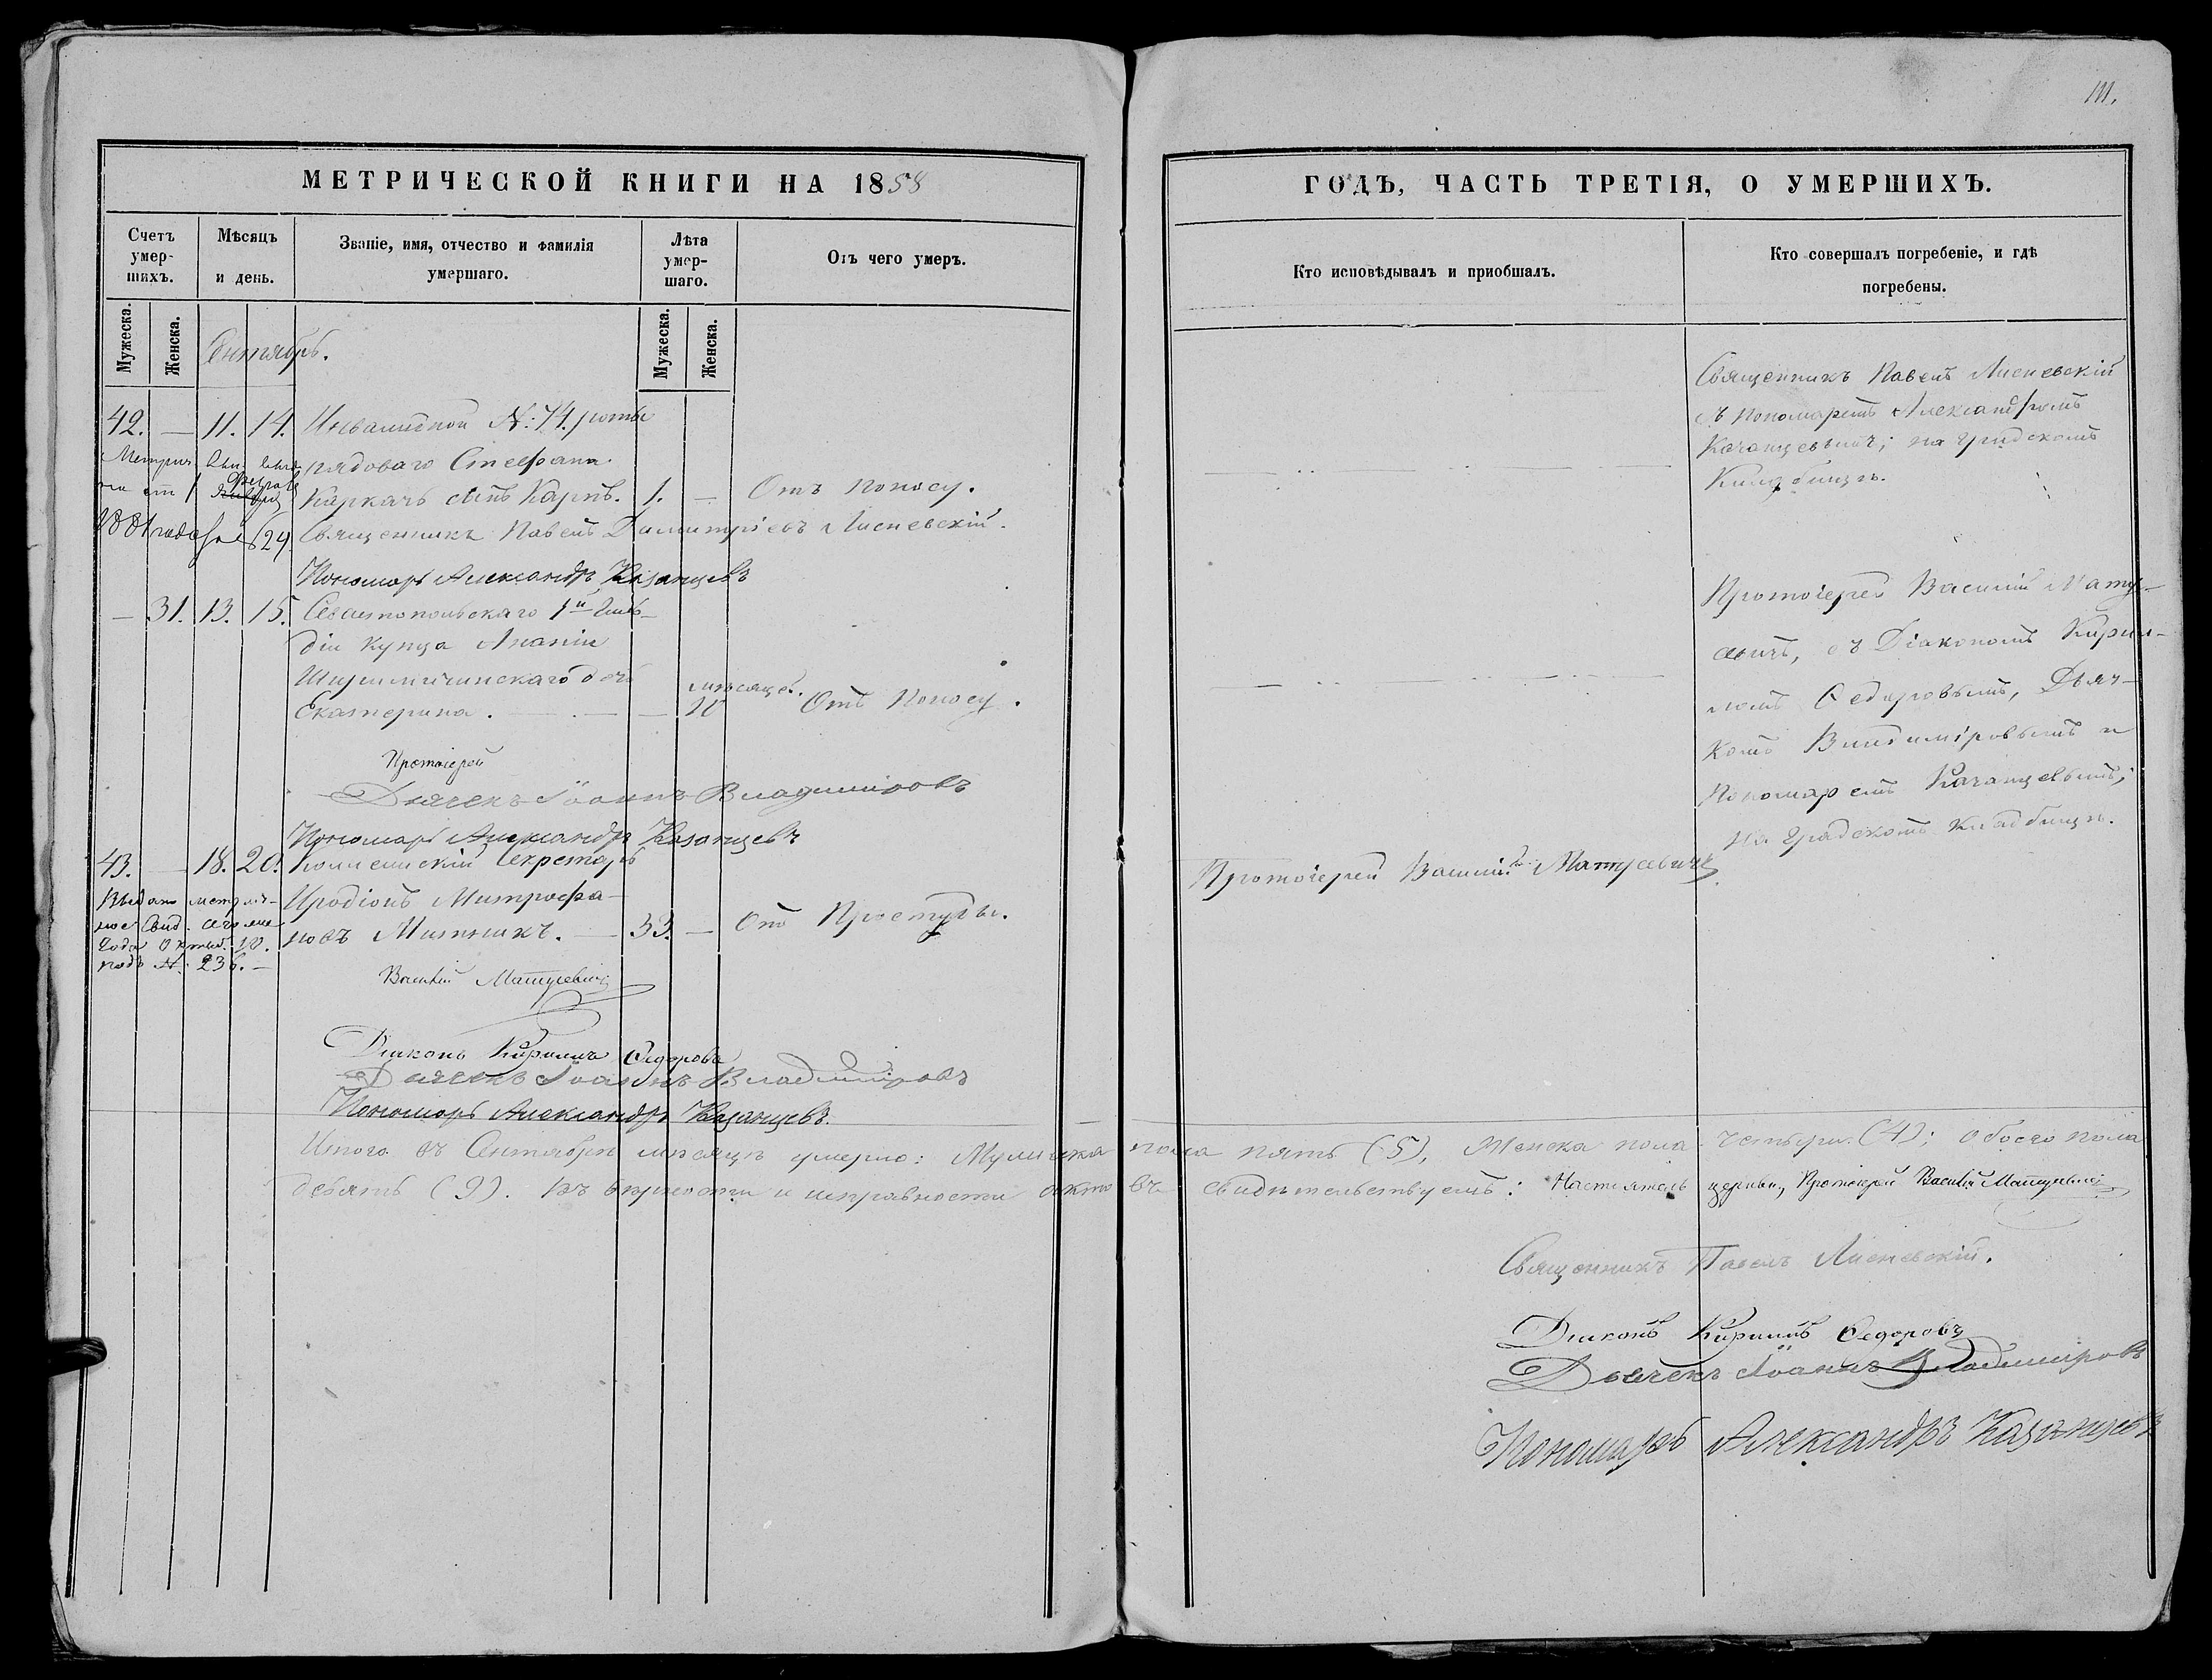 111.
МЕТРИЧЕСКОЙ КНИГИ НА 1858
ГОДЪ, ЧАСТЬ ТРЕТІЯ, О УМЕРШИХЪ.
Счетъ умер-шихъ.
Мѣсяцъ и день.
Званіе, имя, отчество и фамилія умершаго.
Лѣта умер-шаго.
Отъ чего умеръ.
Кто исповѣдывалъ и приобшалъ.
Кто совершалъ погребеніе, и гдѣ погребены.
Мужеска.
Женска.
Мужеска.
Женска.
Сентябрь.
42. — 11. 14. Инвалидной №. 74. роты
рядоваго Стефана
Каркачь сынъ Карпъ. 1. — Отъ поносу.
Священникъ Павелъ Димитріевъ Лисневскій.
Пономарь Александръ Казанцевъ
Священникъ Павелъ Лисневскій
съ пономаремъ Александромъ
Казанцевымъ; на градскомъ
Кладбищѣ.
— 31. 13. 15. Севастопольскаго 1й Гиль-
діи купца Ананіи
дочь
Екатерина. — — мѣсяцев. 10 Отъ Поносу.
Протоіерей
Дьячекъ Іоаннъ Владиміровъ
Пономарь Александръ Казанцевъ
Протоіерей Василій Мату-
севичъ, съ Діакономъ Кирил-
ломъ Федоровымъ, Дьяч-
комъ Владиміровымъ и
Пономаремъ Казанцевымъ;
на Градскомъ кладбищѣ.
43. — 18. 20. Коллежскій Секретарь
Иродіонъ Митрофа-
новъ Митникъ. — 33. — Отъ Простуды.
Протоіерей Василій Матусевичъ
Выдано метриче-
ное Свид. сего же
года Октяб. 10.
подъ №. 236. —
Василій Матусевичъ
Діаконъ Кириллъ Федоровъ
Дьячекъ Іоаннъ Владиміровъ
Пономарь Александръ Казанцевъ.
Итого въ Сентябрѣ мѣсяцѣ умерло: Мужеска пола пять (5), Женска пола четыре (4); обоего пола
девять (9). Въ вѣрности и исправности актовъ свидѣтельствуемъ: Настоятель церкви, Протоіерей Василій Матусевичъ
Священникъ Павелъ Лисневскій.
Діаконъ Кириллъ Федоровъ
Дьячекъ Іоаннъ Владиміровъ
Пономарь Александръ Казанцевъ